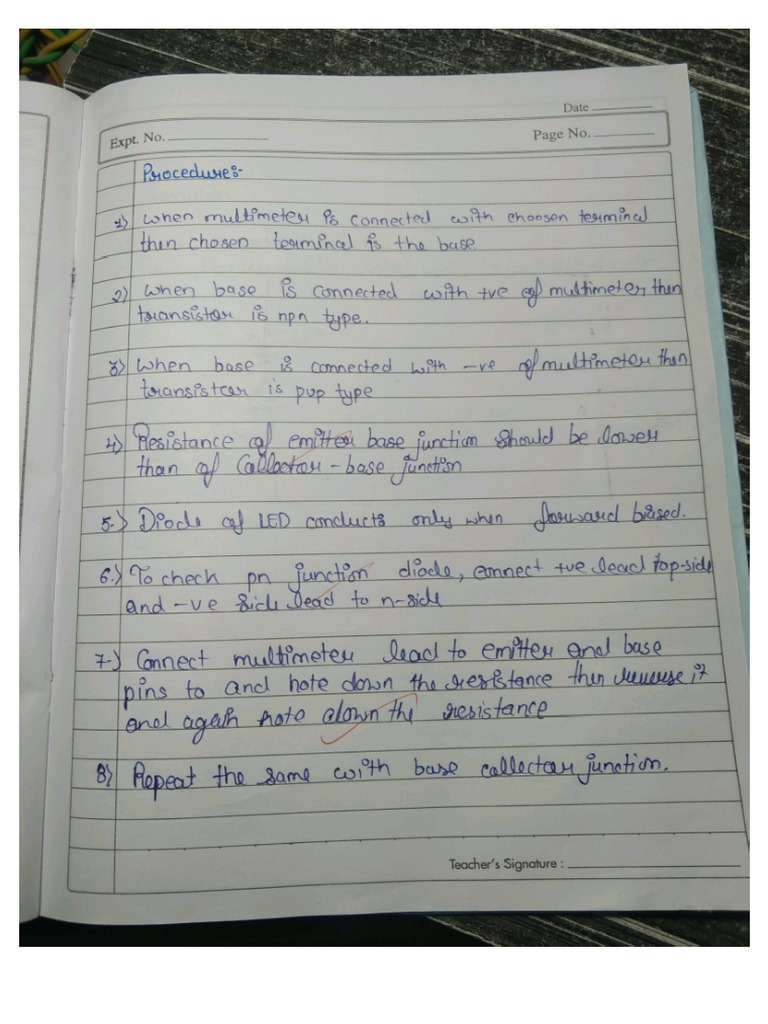 Date
Expt. No.
Page No.
Procedure:-
1) When multimeter is connected with choosen terminal
then chosen terminal is the base
2) When base is connected with +ve of multimeter then
transistor is npn type.
3) When base is connected with -ve of multimeter then
transistor is pvp type
4) Resistance of emitter base junction should be lower
than of Collector - base junction
5.) Diode of LED conducts only when forward biased.
6.) To check pn junction diode, connect +ve lead top-side
and -ve side lead to n-side
7.) Connect multimeter lead to emitter and base
pins to and note down the resistance then reverse it
and again note down the resistance
8) Repeat the same with base collector junction.
Teacher's Signature :